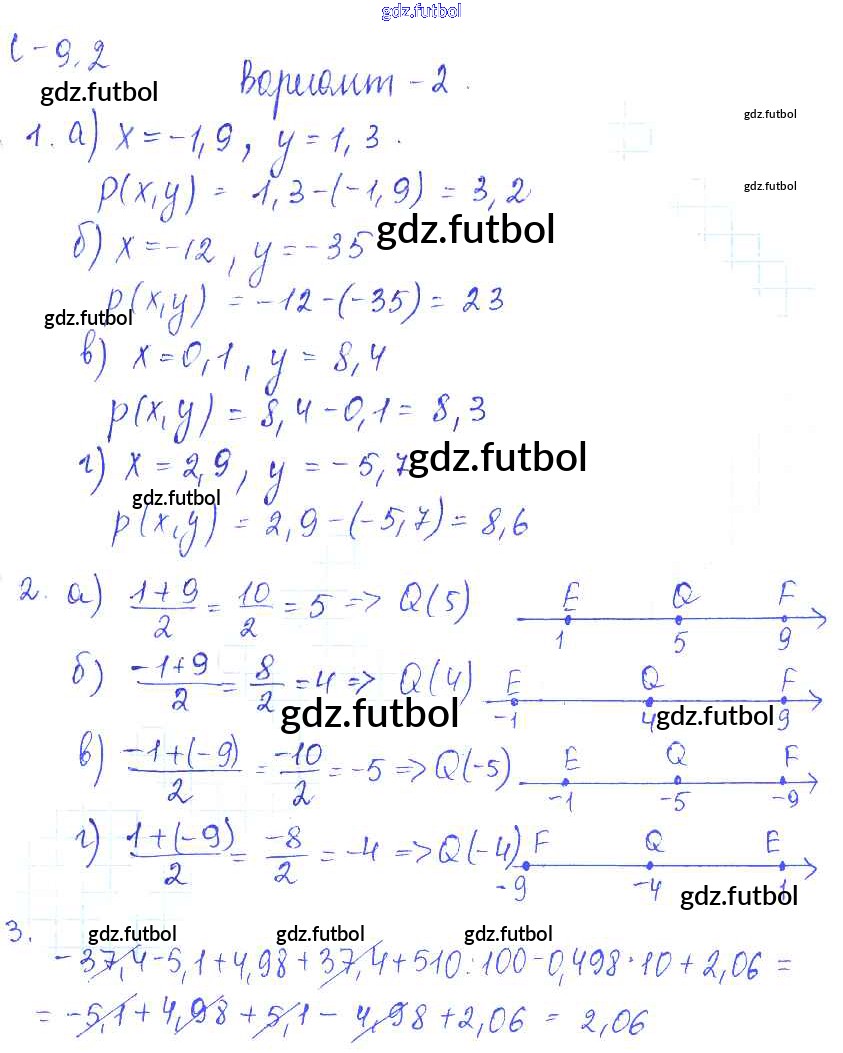 gdz.futbol
С-9.2
gdz.futbol
Вариант-2.
gdz.futbol
1. а) x = -1,9, y = 1,3.
p(x,y) = 1,3-(-1,9) = 3,2
gdz.futbol
б) x = -12, y = -35
gdz.futbol
p(x,y) = -12-(-35) = 23
gdz.futbol
в) x = 0,1, y = 8,4
p(x,y) = 8,4-0,1 = 8,3
г) x = 2,9, y = -5,7
gdz.futbol
gdz.futbol
p(x,y) = 2,9-(-5,7) = 8,6
2. а) (1+9)/2 = 10/2 = 5 => Q(5)
E Q F
1 5 9
б) (-1+9)/2 = 8/2 = 4 => Q(4)
E Q F
-1 4 9
gdz.futbol
gdz.futbol
в) (-1+(-9))/2 = -10/2 = -5 => Q(-5)
E Q F
-1 -5 -9
г) (1+(-9))/2 = -8/2 = -4 => Q(-4)
F Q E
-9 -4 1
gdz.futbol
3.
gdz.futbol gdz.futbol gdz.futbol
-37,4-5,1+4,98+37,4+510:100-0,498·10+2,06 =
= -5,1+4,98+5,1-4,98+2,06 = 2,06